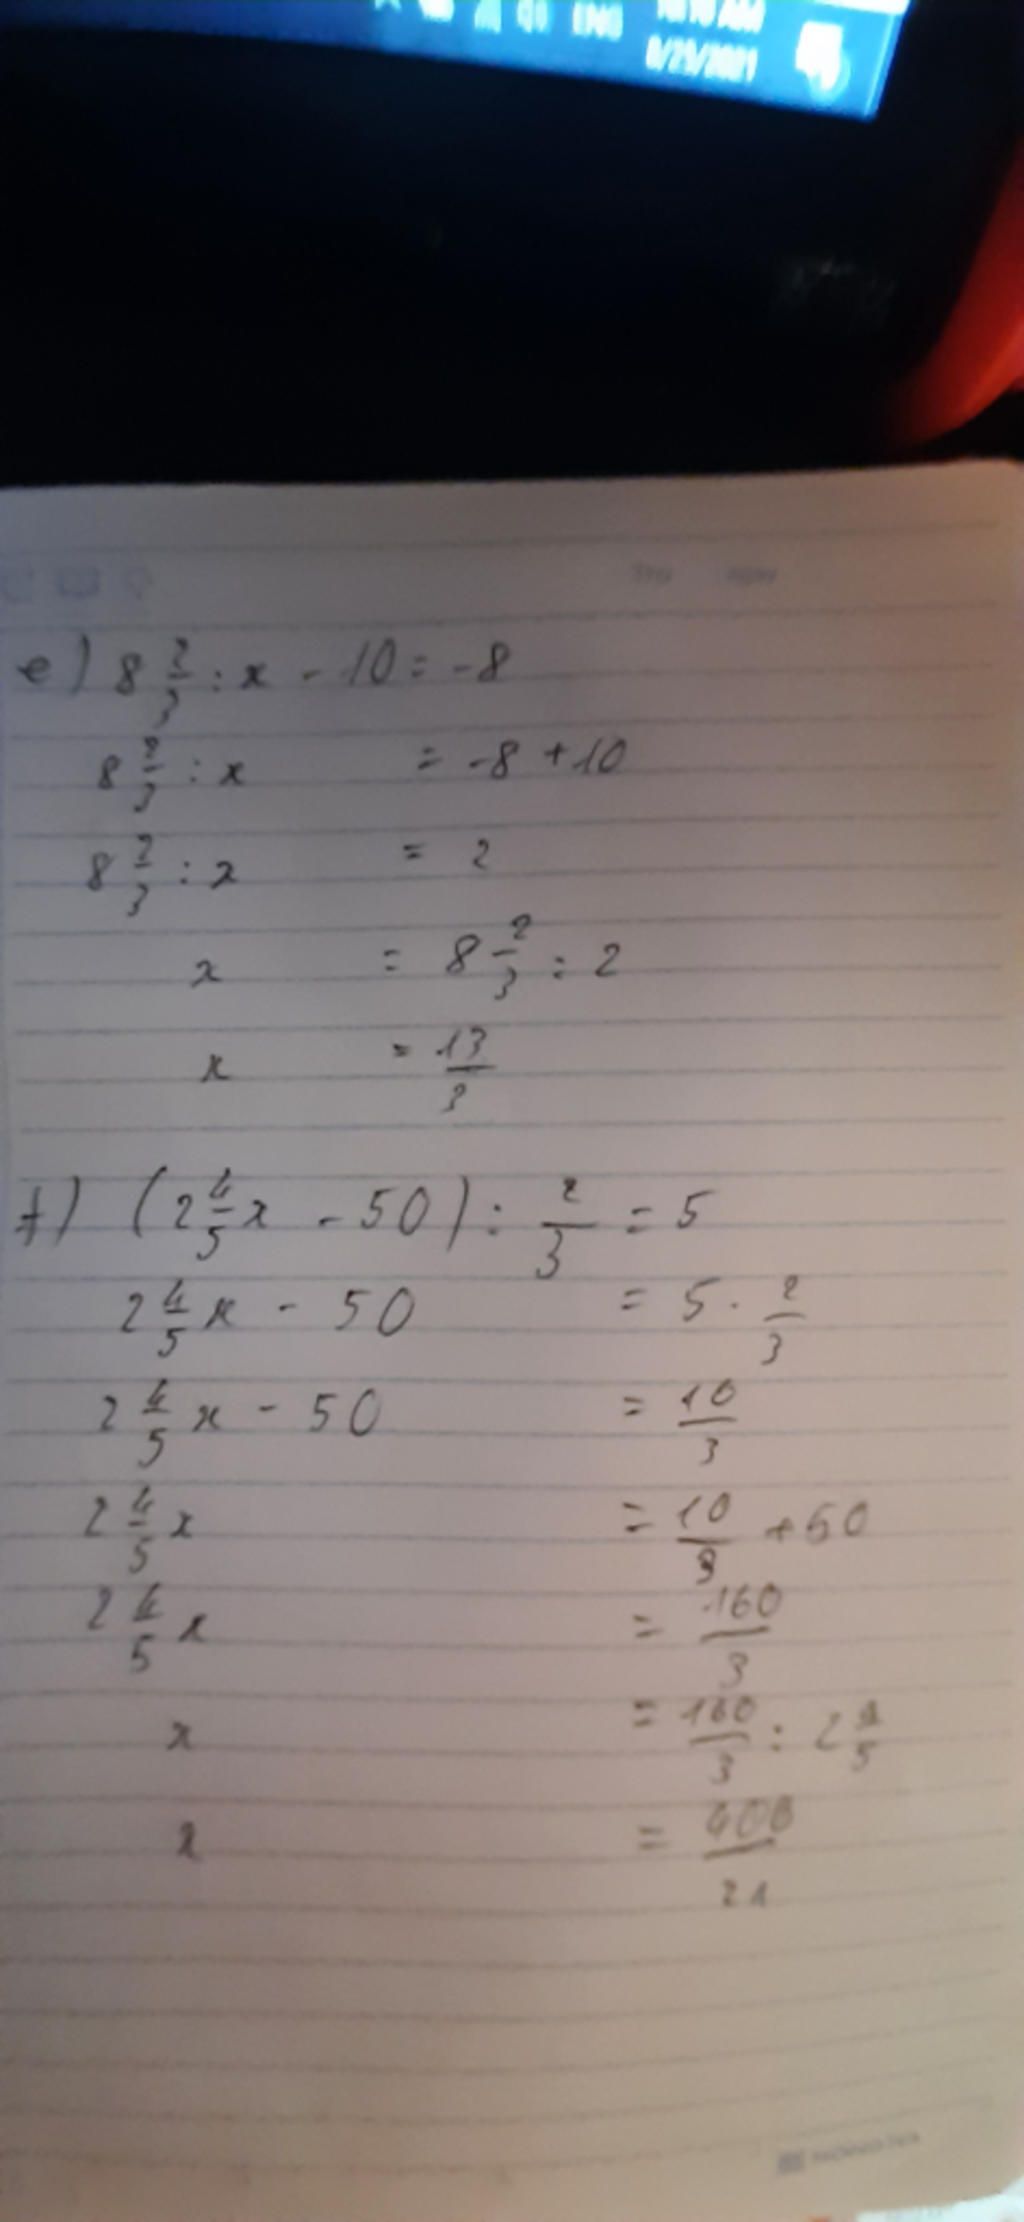 ENG
10:10 AM
8/29/2021
e) 8 2/3 : x - 10 = -8
8 2/3 : x = -8 + 10
8 2/3 : x = 2
x = 8 2/3 : 2
x = 13/3
f) (2 4/5 x - 50) : 2/3 = 5
2 4/5 x - 50 = 5 . 2/3
2 4/5 x - 50 = 10/3
2 4/5 x = 10/3 + 50
2 4/5 x = 160/3
x = 160/3 : 2 4/5
x = 400/21